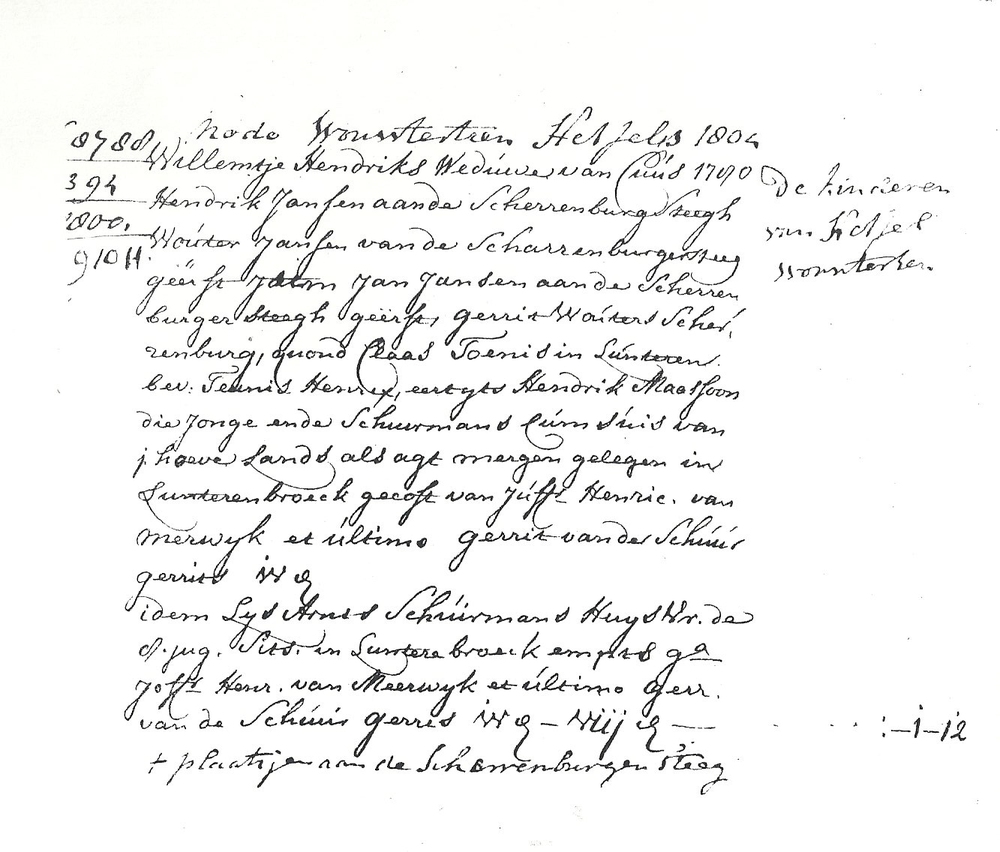 8788.
394
1800.
91011.
Modo Wouwtertien Hetsels 1804
Willemtje Hendriks Weduwe van Cúús 1790
Hendrik Jansen aande Scherrenburg Steegh
Woúter Jansen vande Scharrenburgersteeg
geërft Jan Jansen aande Scherren
burger steegh geërft, gerrit Woúters Scher,
renburg, quond Claas Toenis in Lúnteren.
bev. Teunis Henrix, eertyts Hendrik Maassoon
die Jonge ende Schuurmans Cúm súis van
j. hoeve Lands als agt mergen gelegen in
Lunterenbroeck gecoft van Júffr. Henric. van
merwyk et último gerrit vander Schúúr
gerrits
idem Lys Arnts Schúúrmans Huys Vr. de
8. jug. Sits. in Lunterebroeck empts ga
Joffr. Henr. van Meerwyk et último Gerr.
van de Schúúr Gerris
:-1-12
+ plaatsjen aan de Scharrenburger steeg
De kinderen
van Hetsel
wouwterten